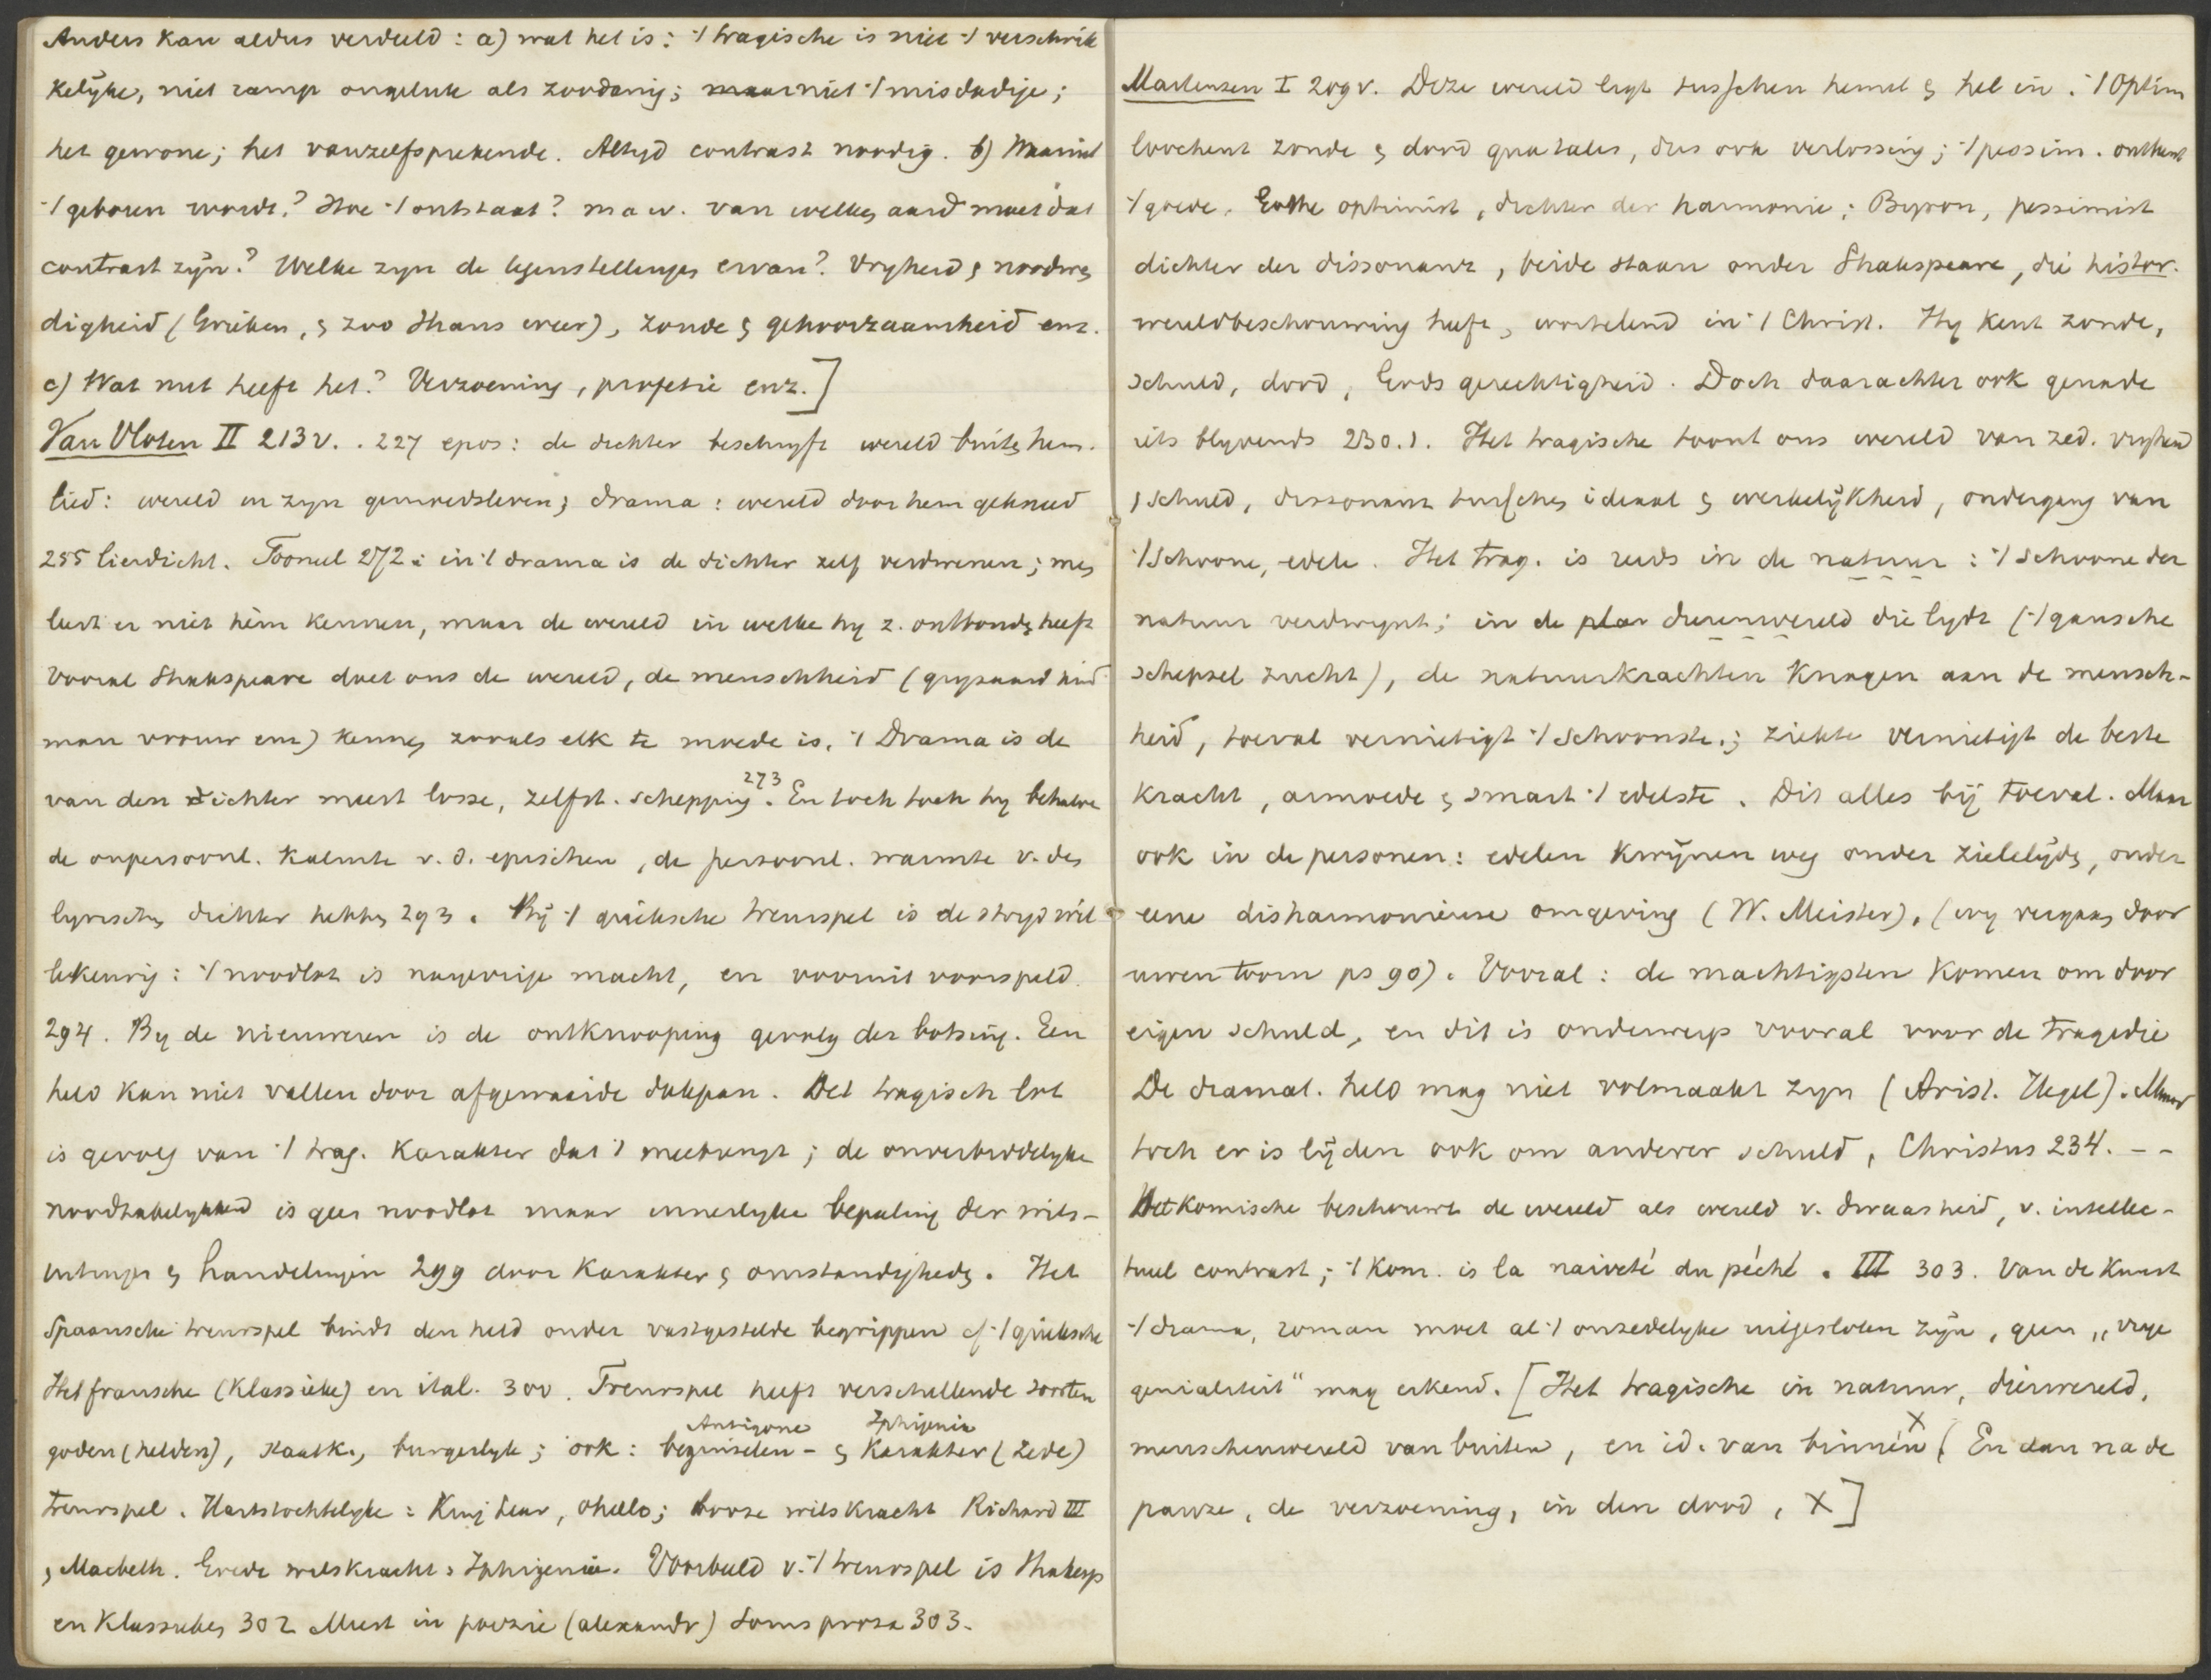 Anders kan aldus verdeeld: a) wat het is: 't tragische is niet 't verschrik
kelijke, niet ramp ongeluk als zoodanig; maar niet 't misdadige;
het gewone; het vanzelfsprekende. Altyd contrast noodig. b) Waaruit
't geboren wordt? Hoe 't ontstaat? m a w. van welken aard moet dat
contrast zijn? Welke zyn de tegenstellingen ervan? Vryheid & noodwen
digheid (Grieken, & zoo thans weer), zonde & gehoorzaamheid enz.
c) Wat nut heeft het? Verzoening, profetie enz.]
Van Vloten II 213 v. . 227 epos: de dichter beschryft wereld buiten hem.
lied: wereld in zyn gemoedsleven; drama: wereld door hem gekneed
255 lierdicht. Tooneel 272: in 't drama is de dichter zelf verdwenen; men
leert er niet hèm kennen, maar de wereld in welke hy z. ontbonden heeft
Vooral Shakspeare doet ons de wereld, de menschheid (grysaard kind
man vrouw enz) kennen zooals elk te moede is. 't Drama is de
van den dichter meest losse, zelfst. schepping 273. En toch toch hy behalve
de onpersoonl. kalmte v. d. epischen, de persoonl. warmte v. den
lyrischen dichter hebben 293. Bij 't grieksche treurspel is de stryd wil
lekeurig: 't noodlot is nayverige macht, en vooruit voorspeld.
294. By de nieuweren is de ontknooping gevolg der botsing. Een
held kan niet vallen door afgewaaide dakpan. Het tragisch lot
is gevolg van 't trag. karakter dat 't meebrengt; de onverbiddelyke
noodzakelykheid is geen noodlot maar innerlyke bepaling der wils-
uitingen & handelingen 299 door karakter & omstandigheden. Het
Spaansche treurspel bindt den held onder vastgestelde begrippen cf 't grieksche
Het fransche (klassieke) en ital. 300. Treurspel heeft verschillende soorten
goden (helden), staatk., burgerlyk; ook: beginselen - Antigone & karakter (zede) Iphigenia
treurspel. Hartstochtelyke: King Lear, Othello; booze wilskracht Richard III
, Macbeth. Goede wilskracht: Iphigenia. Voorbeeld v. 't treurspel is Shakesp
en Klassieken 302 Meest in poezie (alexandr) soms proza 303.
Martensen I 209 v. Deze wereld ligt tusschen hemel & hel in. 't Optim
loochent zonde & dood qua tales, dus ook verlossing; 't pessim. ontkent
't goede. Göthe optimist, dichter der harmonie; Byron, pessimist
dichter der dissonans, beide staan onder Shakspeare, die histor.
wereldbeschouwing heeft, wortelend in 't Christ. Hy kent zonde,
schuld, dood, Gods gerechtigheid. Doch daarachter ook genade
iets blyvends 230.1. Het tragische toont ons wereld van zed. vryheid
& schuld, dissonans tusschen ideaal & werkelijkheid, ondergang van
't schoone, edele. Het trag. is reeds in de natuur: 't schoone der
natuur verdwynt; in de plan dierenwereld die lydt ('t gansche
schepsel zucht), de natuurkrachten knagen aan de mensch-
heid, toeval vernietigt 't schoonste; ziekte vernietigt de beste
kracht, armoede & smart 't edelste. Dit alles bij toeval. Maar
ook in de personen: edelen kwijnen weg onder zielelijden, onder
eene disharmonieuse omgeving (W. Meister), (wy vergaan door
uwen toorn ps 90). Vooral: de machtigsten komen om door
eigen schuld, en dit is onderwerp vooral voor de tragedie
De dramat. held mag niet volmaakt zyn (Arist. Hegel). Maar
toch er is lijden ook om anderer schuld, Christus 234. - -
Het komische beschouwt de wereld als wereld v. dwaasheid, v. intellec-
tueel contrast; 't kom. is la naiveté du péché. III 303. Van de kunst
't drama, roman moet al 't onzedelyke uitgesloten zijn, geen „vrye
genialiteit" mag erkend. [Het tragische in natuur, dierwereld,
menschenwereld van buiten, en id. van binnen X (En dan na de
pauze, de verzoening, in den dood, X]